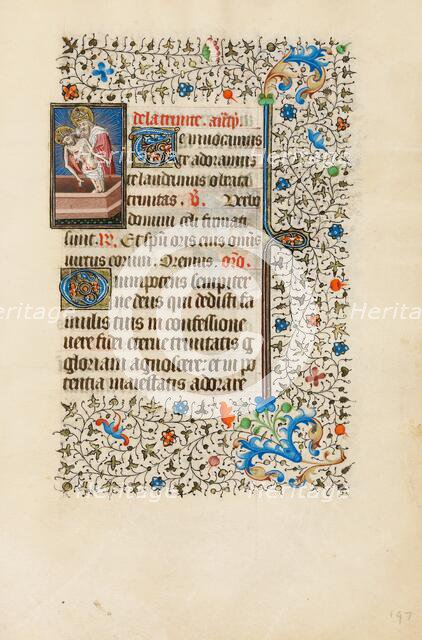 de la trinite. ant̄
Te invocamus
te adoramus
te laudamus o beata
trinitas. v̄. Verbo
domini celi firmati
sunt. R̄. Et sp̄u oris eius omnis
virtus eorum. Oremus. orō.
Omnipotens sempiter
ne deus qui dedisti fa
mulis tuis in confessione
vere fidei eterne trinitatis g
gloriam agnoscere: et in po
tentia maiestatis adorare
Heritage
Images
197